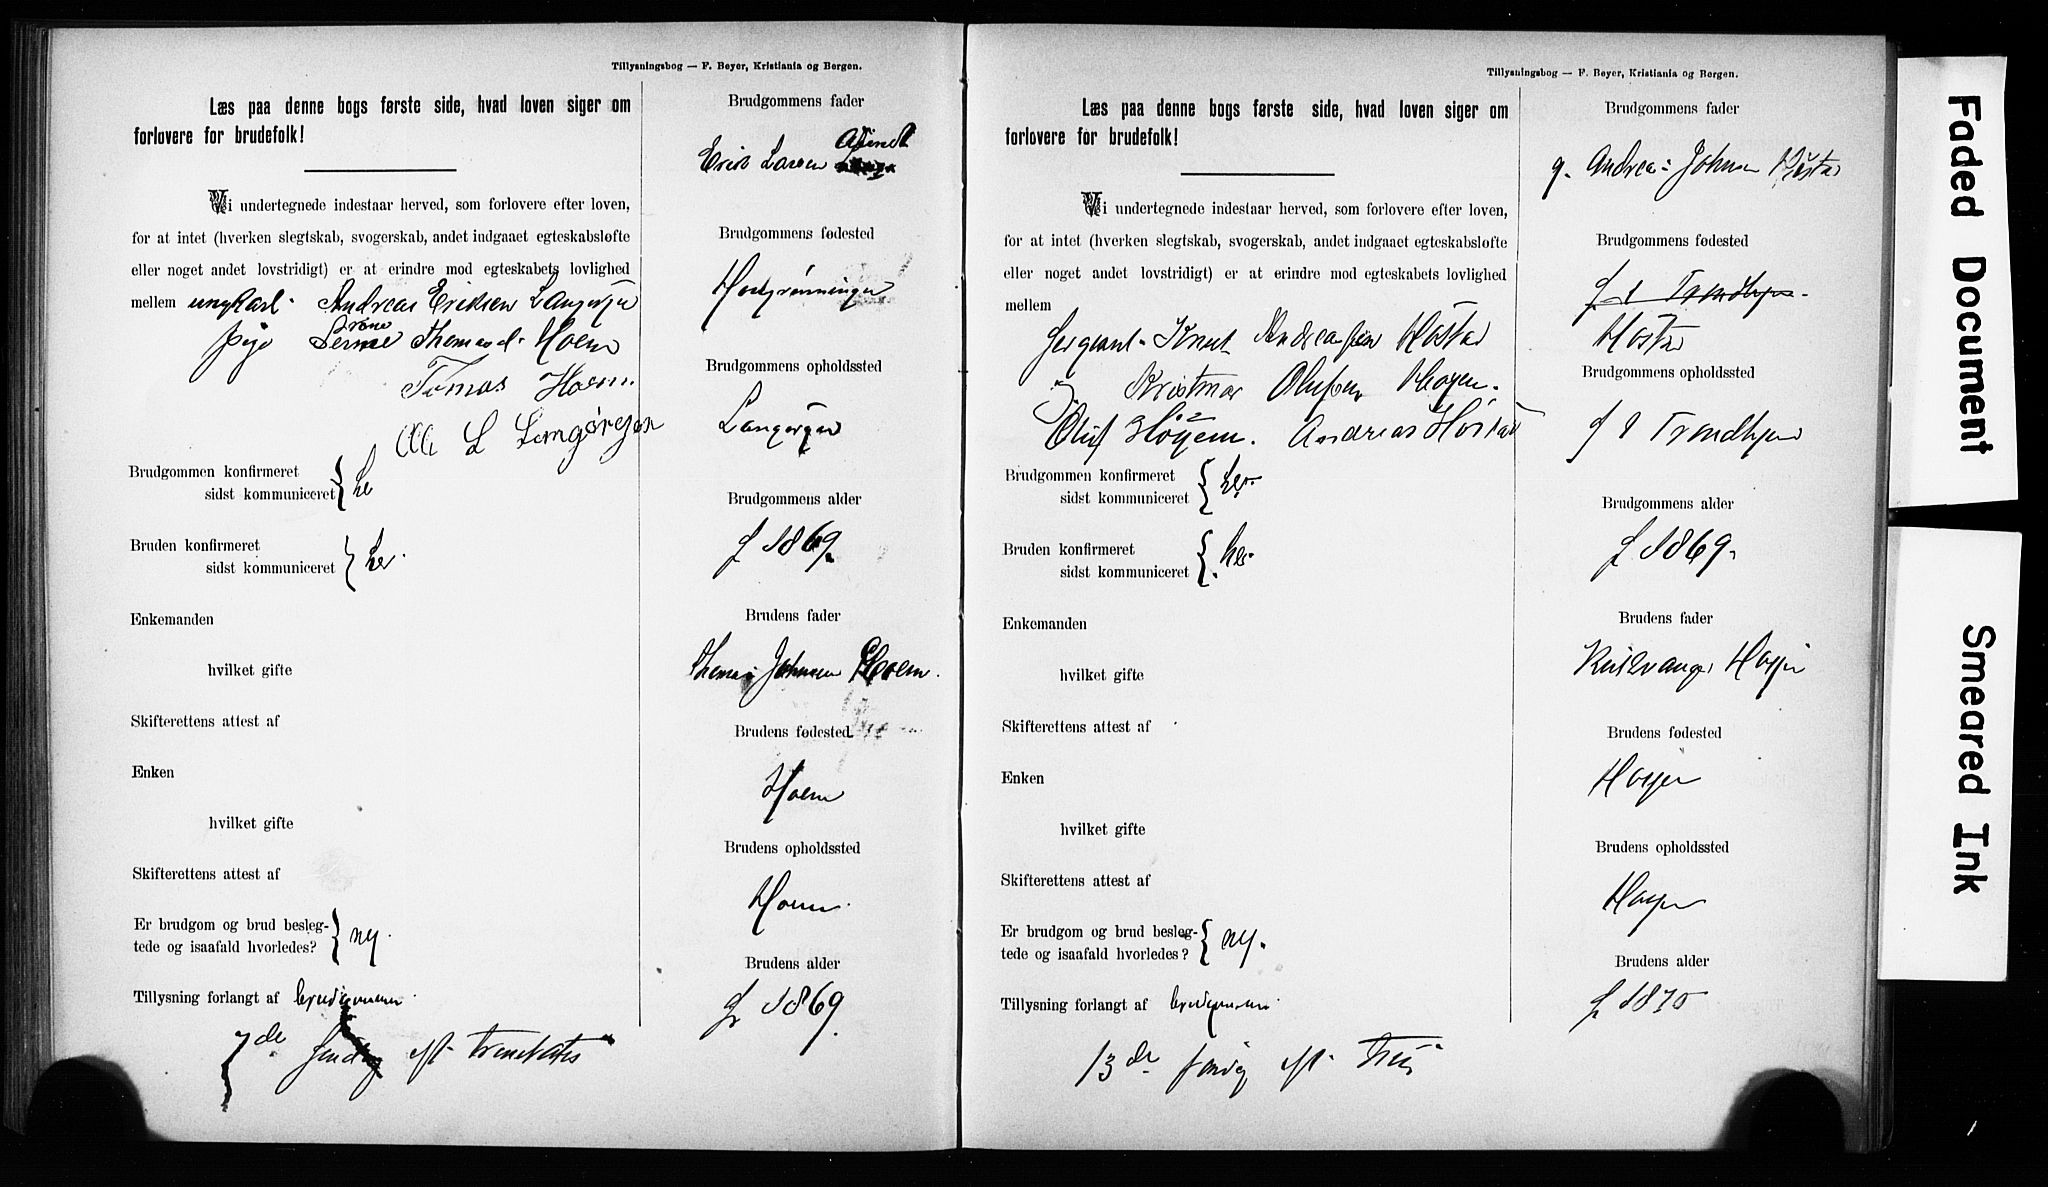 Tillysningsbog — F. Beyer, Kristiania og Bergen.
Læs paa denne bogs første side, hvad loven siger om
forlovere for brudefolk!
Vi undertegnede indestaar herved, som forlovere efter loven,
for at intet (hverken slegtskab, svogerskab, andet indgaaet egteskabsløfte
eller noget andet lovstridigt) er at erindre mod egteskabets lovlighed
mellem ungkarl Andreas Eriksen
pige Thomasd. Hoem
Tomas Hoem
Brudgommen konfirmeret
sidst kommuniceret
Bruden konfirmeret
sidst kommuniceret
her
Enkemanden
hvilket gifte
Skifterettens attest af
Enken
hvilket gifte
Skifterettens attest af
Er brudgom og brud besleg-
tede og isaafald hvorledes?
nej.
Tillysning forlangt af brudgommen
7de søndag eft. trinitatis
Brudgommens fader
Erik Larsen
Brudgommens fødested
Brudgommens opholdssted
Brudgommens alder
f 1869.
Brudens fader
Thomas Johnsen Hoem.
Brudens fødested
Hoem
Brudens opholdssted
Hoem.
Brudens alder
f 1869.
Tillysningsbog — F. Beyer, Kristiania og Bergen.
Læs paa denne bogs første side, hvad loven siger om
forlovere for brudefolk!
Vi undertegnede indestaar herved, som forlovere efter loven,
for at intet (hverken slegtskab, svogerskab, andet indgaaet egteskabsløfte
eller noget andet lovstridigt) er at erindre mod egteskabets lovlighed
mellem
Sergeant Knut Andreassen Høstad
Olufsen
Oluf Andreas Høstad
Brudgommen konfirmeret
sidst kommuniceret
her.
Bruden konfirmeret
sidst kommuniceret
her.
Enkemanden
hvilket gifte
Skifterettens attest af
Enken
hvilket gifte
Skifterettens attest af
Er brudgom og brud besleg-
tede og isaafald hvorledes?
nej.
Tillysning forlangt af brudgommen
13de søndag eft. Trin
Brudgommens fader
g. Andreas Johnsen Høstad
Brudgommens fødested
Trondhjem
Høstad
Brudgommens opholdssted
Trondhjem
Brudgommens alder
f 1869.
Brudens fader
Brudens fødested
Brudens opholdssted
Brudens alder
f 1870
Faded Document
Smeared Ink